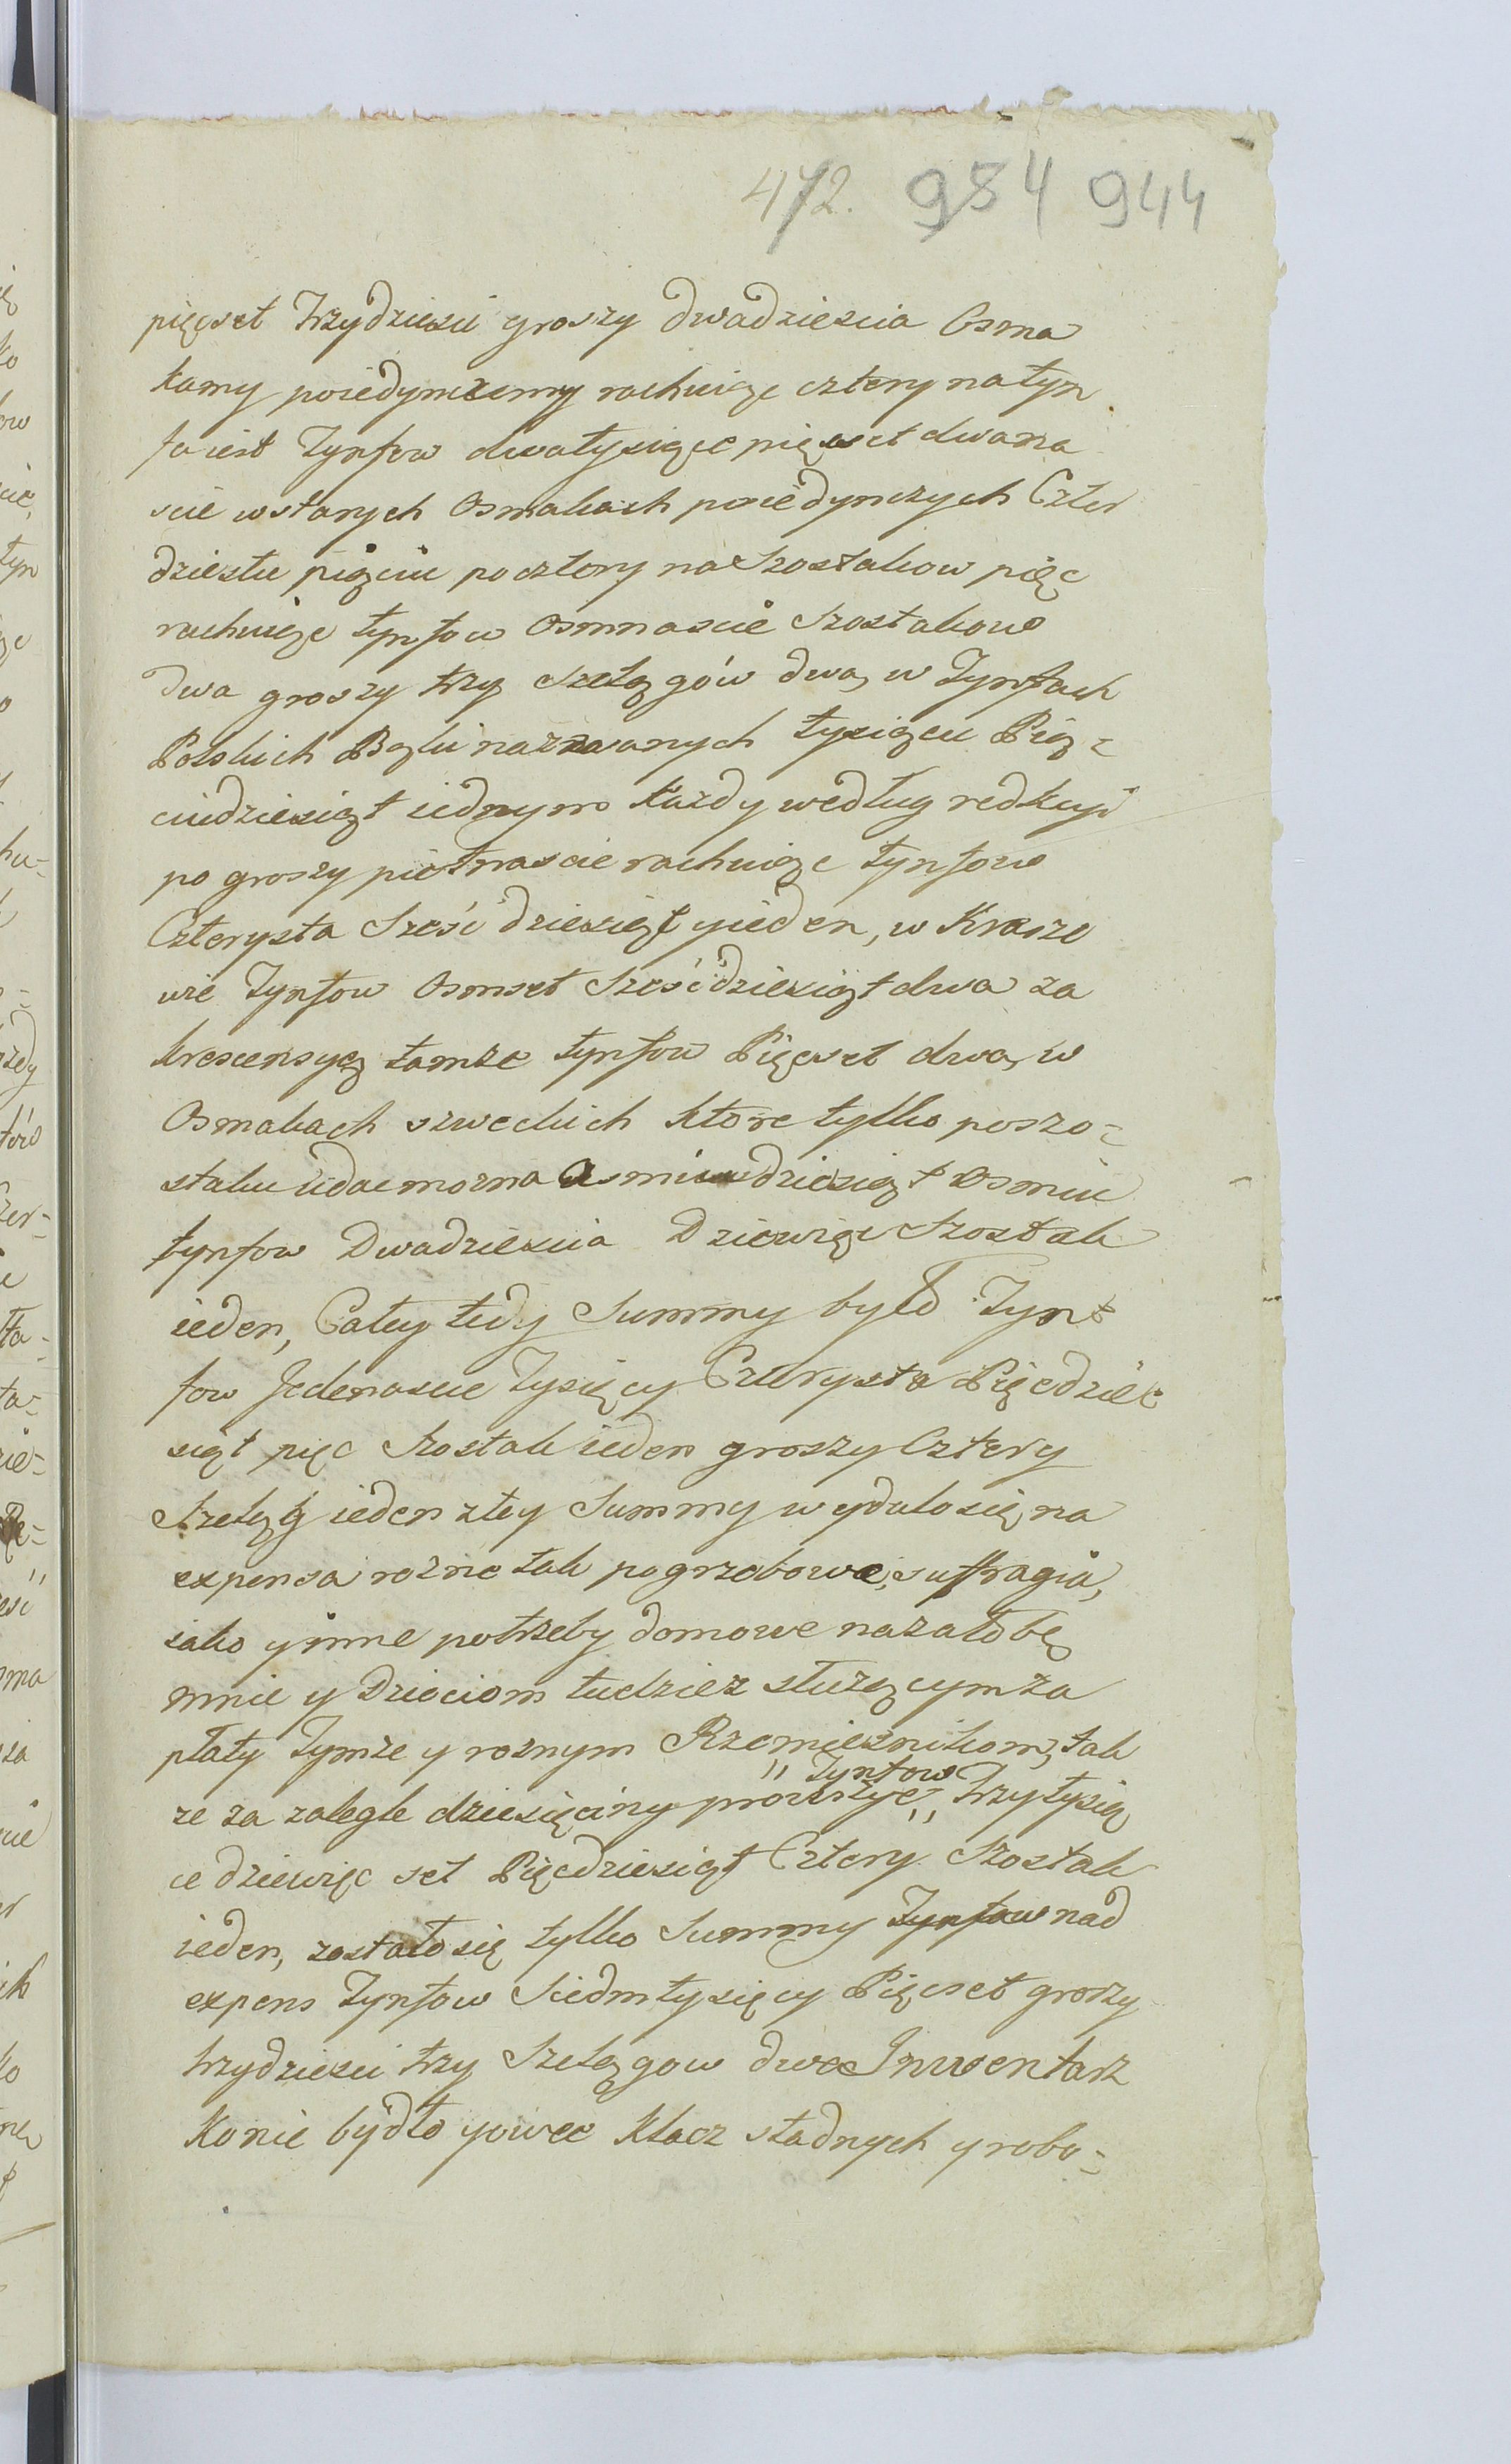 472. 984 944
pięcset Trzydziesci groszy dwadziescia Osma
kamy poiedynczemy rachuiąc cztery na tyn
fa iest Tynfow dwatysiące pięcset dwana
scie wstarych Osmakach poiedynczych Czter
dziestu pięciu po cztery na Szostakow pięc
rachuiąc tynfow Osmnascie Szostakow
dwa groszy trzy szelągów dwa, w Tynfach
Polskich Bąki nazwanych tysiącu Pięć
ciudziesiąt iednym każdy według redkuji
po groszy pietnascie rachuiąc tynfow
Czterysta Sześćdziesiąt yieden, w Krasze
wie Tynfow Osmset Sześćdziesiąt dwa za
krescensyą tamże tynfow Pięcset dwa, w
Osmakach szweckich które tylko poszo-
staku udac mozna Osmiudziesiąt Osmiu
tynfow Dwadziescia Dziewięc Szostak
ieden, Całey tedy Summy było Tyn-
fow Jedenascie Tysięcy Czterysta Pięcdzie-
siąt pięc Szostak ieden groszy Cztery
Szeląg ieden ztey Summy wydało się na
expensa rozne tak pogrzebowe, suffragia,
iako y inne potrzeby domowe na załobę
mnie y Dzieciom tudziez służącym za
płaty Tymże y roznym Rzemieznikom, tak
" Tynfow
ze za zaległe dziesięciny prowizye " Trzy tysią
ce dziewięc set Pięcdziesiąt Cztery Szostak
ieden, zostało się tylko Summy Tynfow nad
expens Tynfow Siedmtysięcy Pięcset groszy
trzydziesci trzy Szelągow dwa Inwentarz
Konie bydło yowce Klacz stadnych y robo-